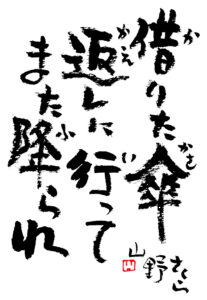 借りた傘
返しに行って
また降られ
山野さくら